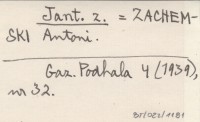 Jant. z. = ZACHEM-
SKI Antoni.
Gaz. Podhala 4 (1939),
nr 32.